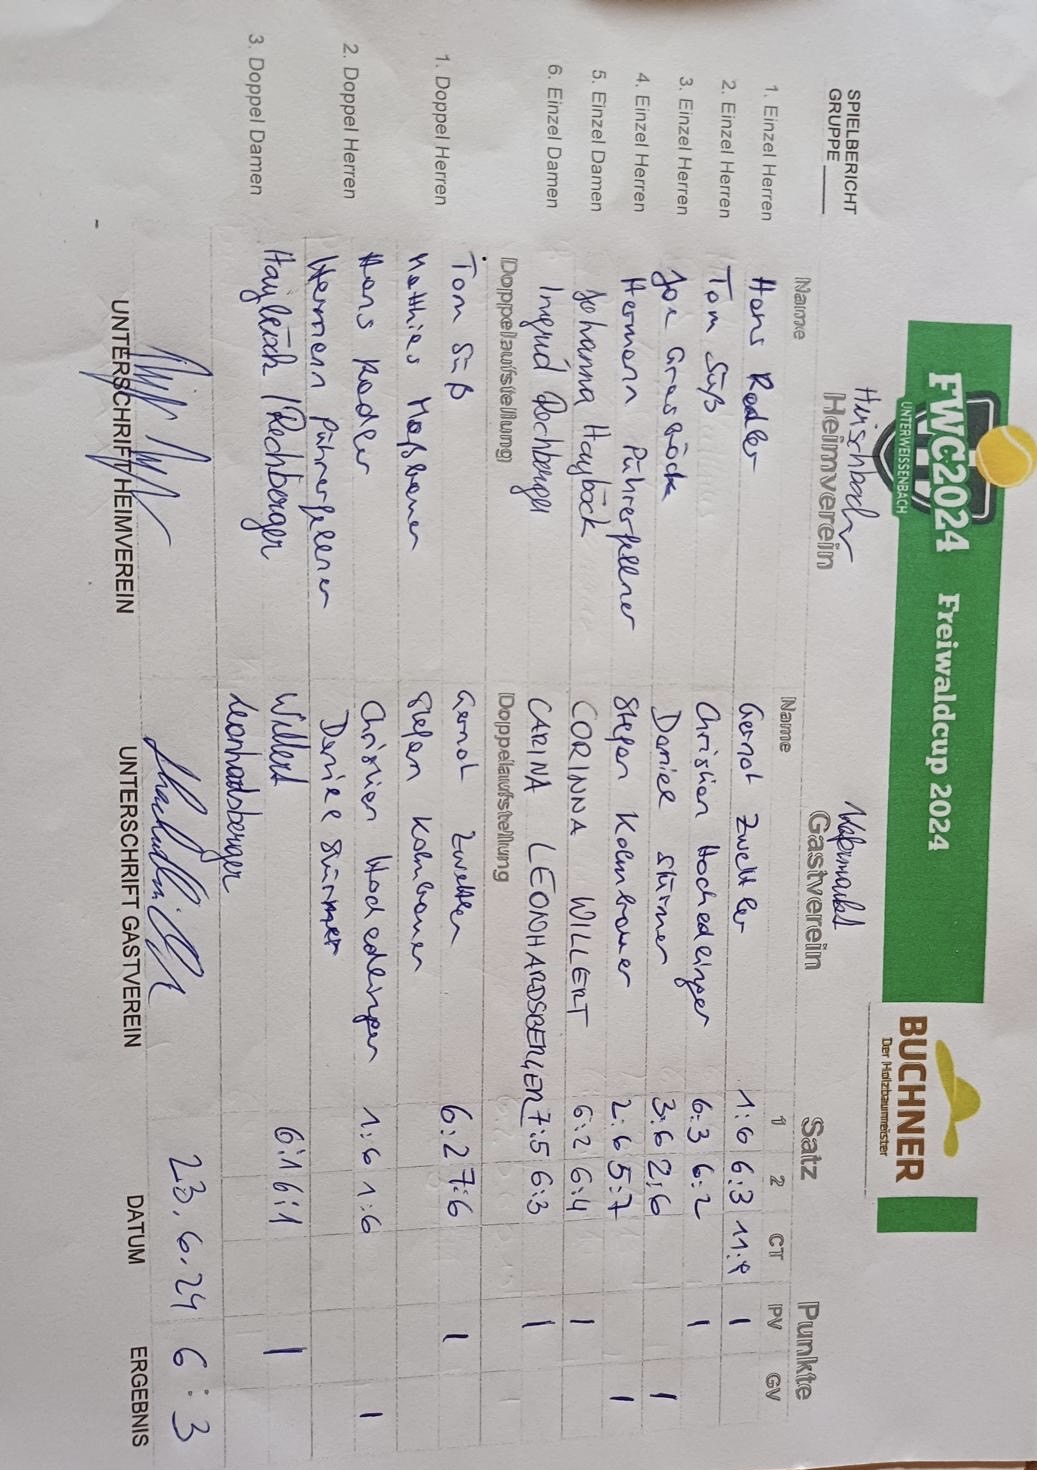 FWC2024
UNTERWEISSENBACH
Freiwaldcup 2024
BUCHNER
Der Holzbaumeister
SPIELBERICHT
GRUPPE
Hirschbach
Heimverein
Gastverein
Satz
Punkte
Name
Name
1 2 CT PV GV
1. Einzel Herren Hans Radler Gernot Zwettler 1:6 6:3 11:9 1
2. Einzel Herren Tom Süß Christian Hochedlinger 6:3 6:2 1
3. Einzel Herren Joe Grasböck Daniel Stürmer 3:6 2:6 1
4. Einzel Herren Hermann Pührerfellner Stefan Kolmbauer 2:6 5:7 1
5. Einzel Damen Johanna Hayböck CORINNA WILLERT 6:2 6:4 1
6. Einzel Damen Ingrid Rechberger CARINA LEONHARDSBERGER 7:5 6:3 1
Doppelaufstellung Doppelaufstellung
1. Doppel Herren Tom Süß Gernot Zwettler 6:2 7:6 1
Matthias Stefan Kolmbauer
2. Doppel Herren Hans Radler Christian Hochedlinger 1:6 1:6 1
Hermann Pührerfellner Daniel Stürmer
3. Doppel Damen /Rechberger Willert 6:1 6:1 1
Leonhardsberger
23.6.24 6:3
UNTERSCHRIFT HEIMVEREIN UNTERSCHRIFT GASTVEREIN DATUM ERGEBNIS